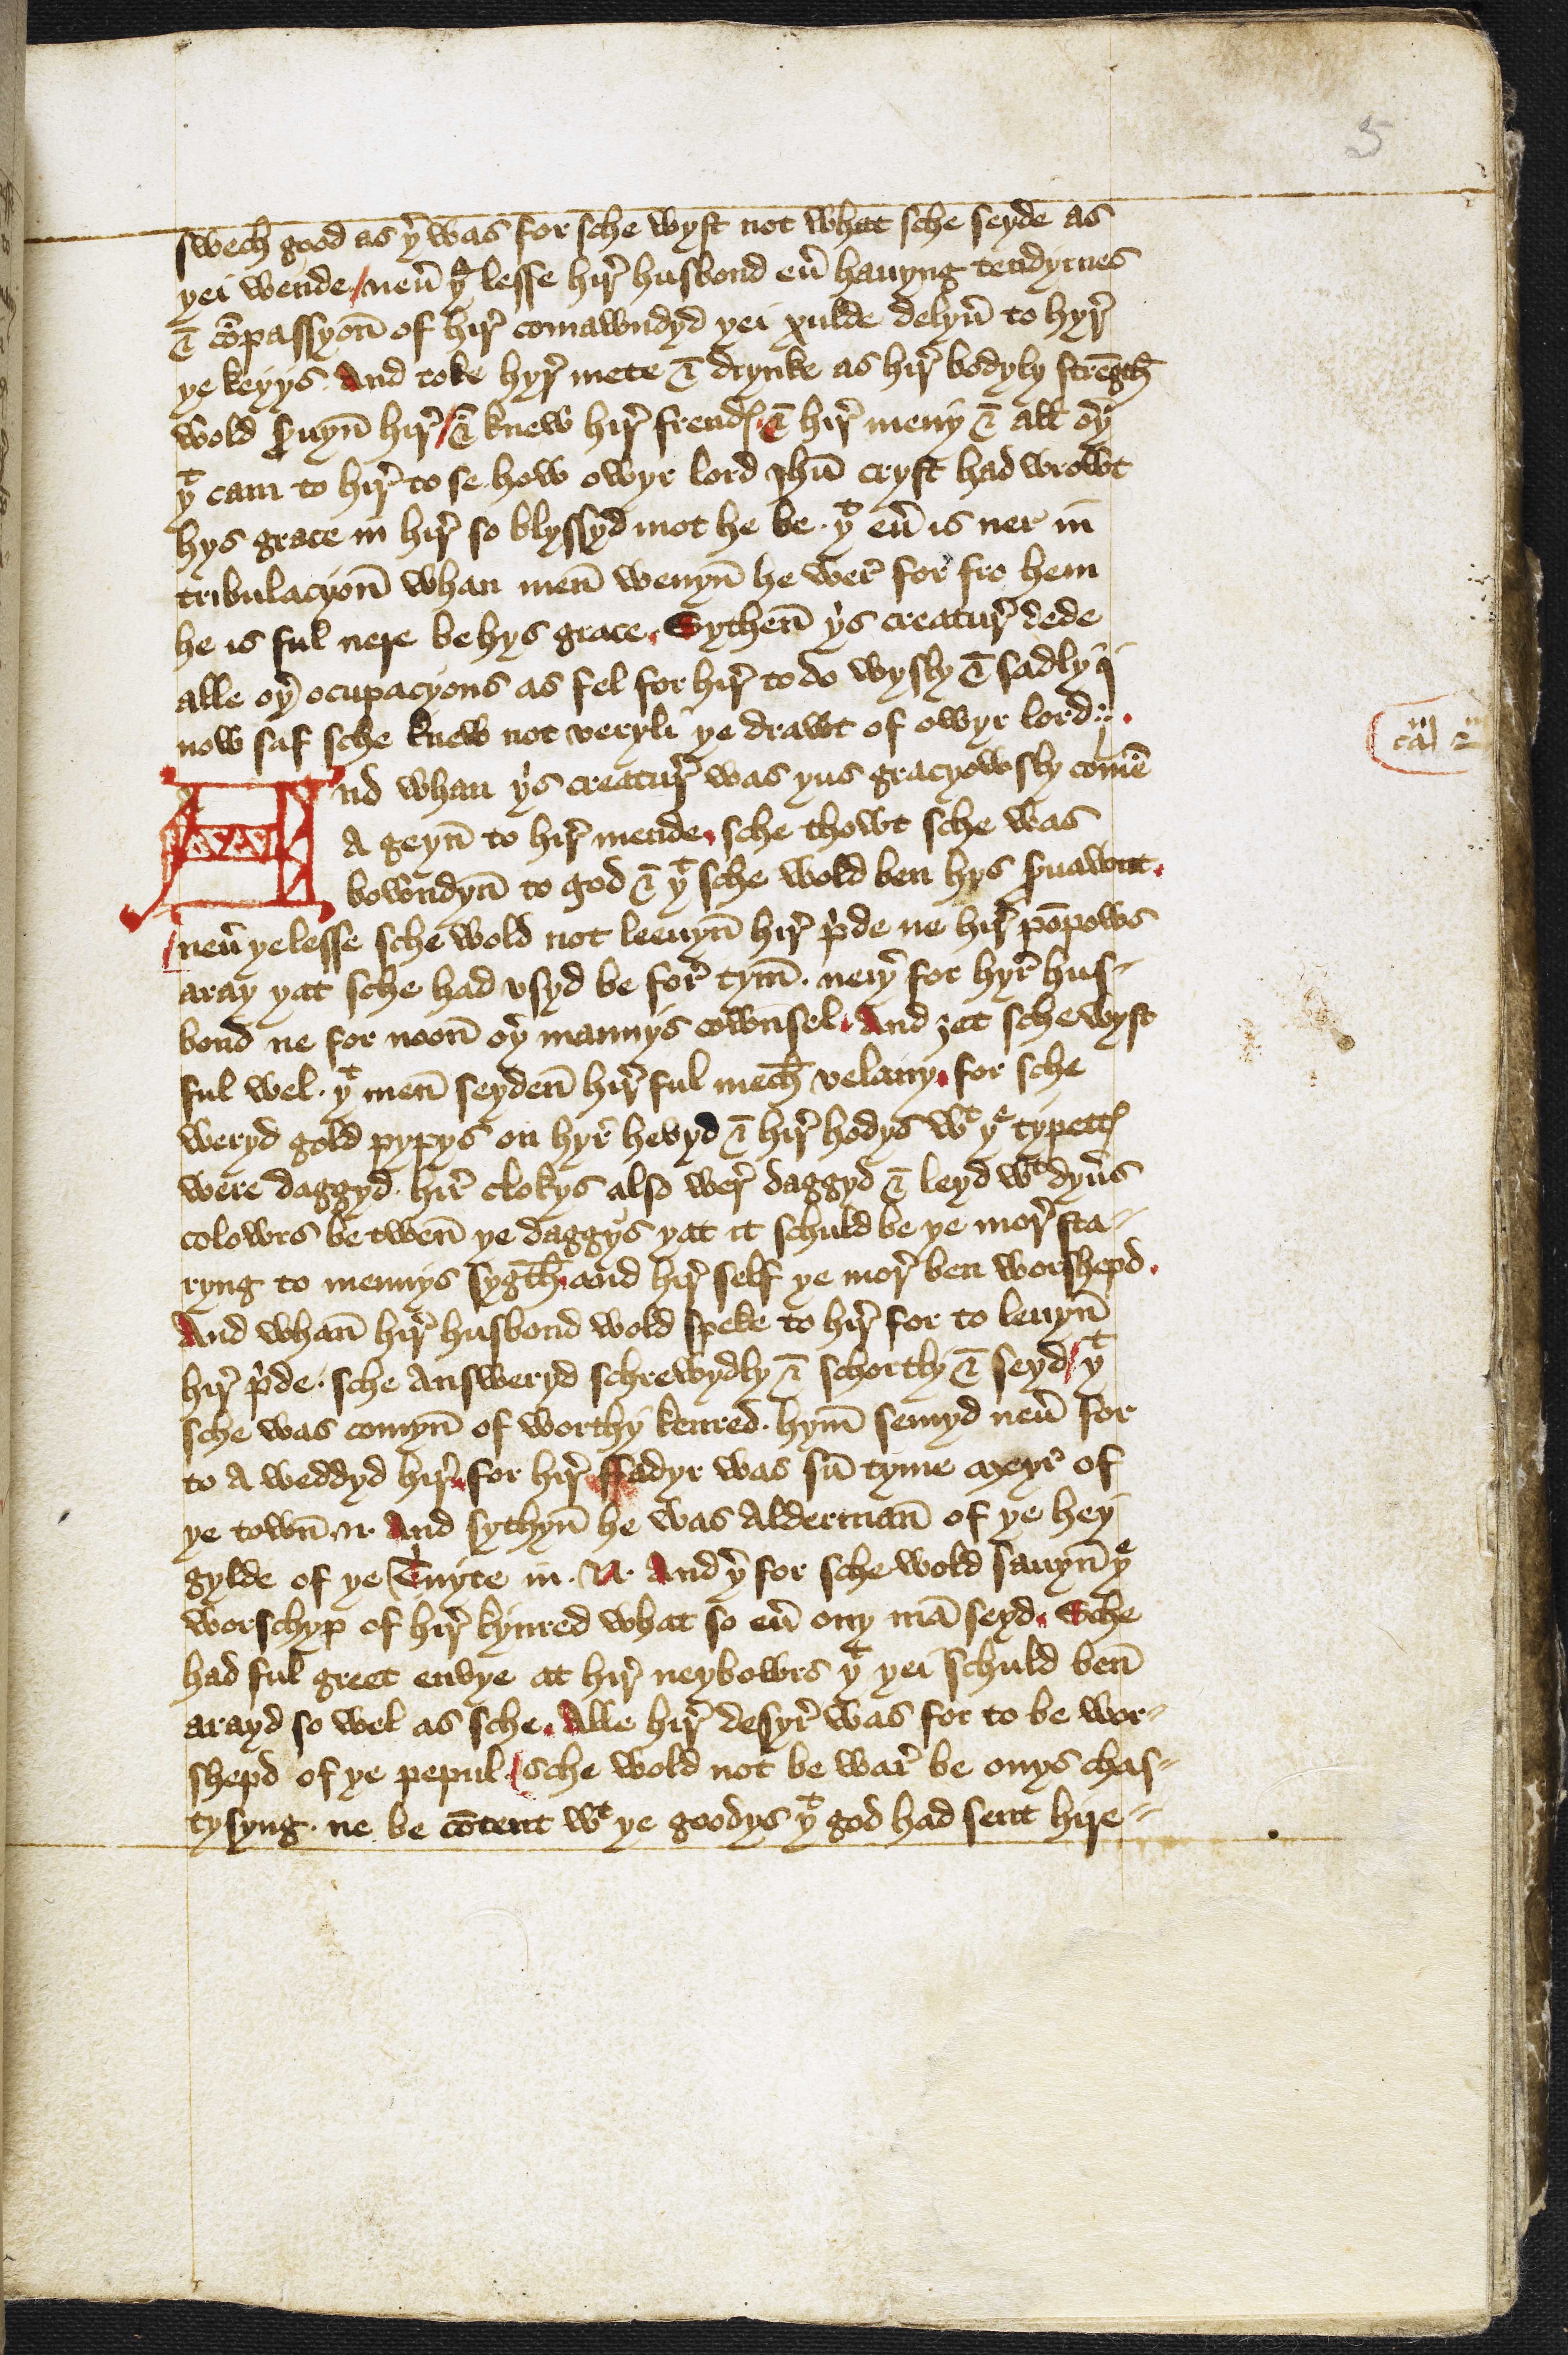 5
swech good as yͬ was for sche wyst not what sche seyde as
yei wende / neuͬ yͤ lesse hirͬ husbond euͬ hauyng tendyrnes
& cōpassyon̄ of hirͬ comawndyd yei xulde delyn̄ to hyrͬ
ye keyys. And toke hyrͬ mete & drynke as hirͬ bodyly strēgth
wold ſuyn̄ hirͬ / & knew hirͬ frendꝭ & hirͬ meny & all oyͬ
yͭ cam to hirͬ to se how owyr lord Ihū cryst had wrowt
hys grace in hirͬ so blyssyd mot he be. yͭ euͬ is ner in
tribulacyon̄ whan men̄ wenyn̄ he werͬ for fro hem
he is ful nere be hys grace. Sythen̄ yͥs creaturͬ dede
alle oyͬ ocupacyons as fel for hirͬ to do wysly & sadly j
now saf sche knew not veryli ye drawt of owyr lord :.
caᵐ 2ᵐ
And whan yͥs creaturͬ was yus gracyowsly comē
A geyn̄ to hirͬ mende. sche thowt sche was
bowndyn̄ to god & yͭ sche wold ben hys ſuawnt.
/ neuͬ ye lesse sche wold not leeuyn̄ hirͬ pͥde ne hirͬ pōpows
aray yat sche had vsyd be forͬ tym̄. neiyͬ for hyrͬ hus-
bond ne for noon̄ oyͬ mannys cownsel. And ȝet sche wyst
ful wel. yͭ men̄ seyden̄ hirͬ ful mech velany. for sche
weryd gold pypys on hyrͬ hevyd & hirͬ hodys wͭ yͤ typettꝭ
were daggyd. hirͬ clokys also werͬ daggyd & leyd wͭ dyuͬs
colowrs be twen̄ ye daggys yat it schuld be ye morͬ sta-
ryng to mennys sygth. and hirͬ self ye morͬ ben worshepd.
And whan̄ hirͬ husbond wold speke to hirͬ for to leuyn̄
hirͬ pͥde. sche answeryd schrewydly & schortly & seyd / yͭ
sche was comyn̄ of worthy kenred. hym̄ semyd neuͬ for
to A weddyd hirͬ. for hirͬ ffadyr was sū tyme meyrͬ of
ye town̄ .N. And sythyn̄ he was alderman̄ of ye hey
gylde of ye Tͥnyte in .N. And yͬ for sche wold sauyn̄ yͤ
worschyp of hirͬ kynred what so euͬ ony mā seyd. Sche
had ful greet envye at hirͬ neybowrs yͭ yei schuld ben̄
arayd so wel as sche. Alle hirͬ desyrͬ was for to be wor-
shepd of ye pepul. / sche wold not be warͬ be onys chas-
tysyng. ne be cōtent wͭ ye goodys yͭ god had sent hire-